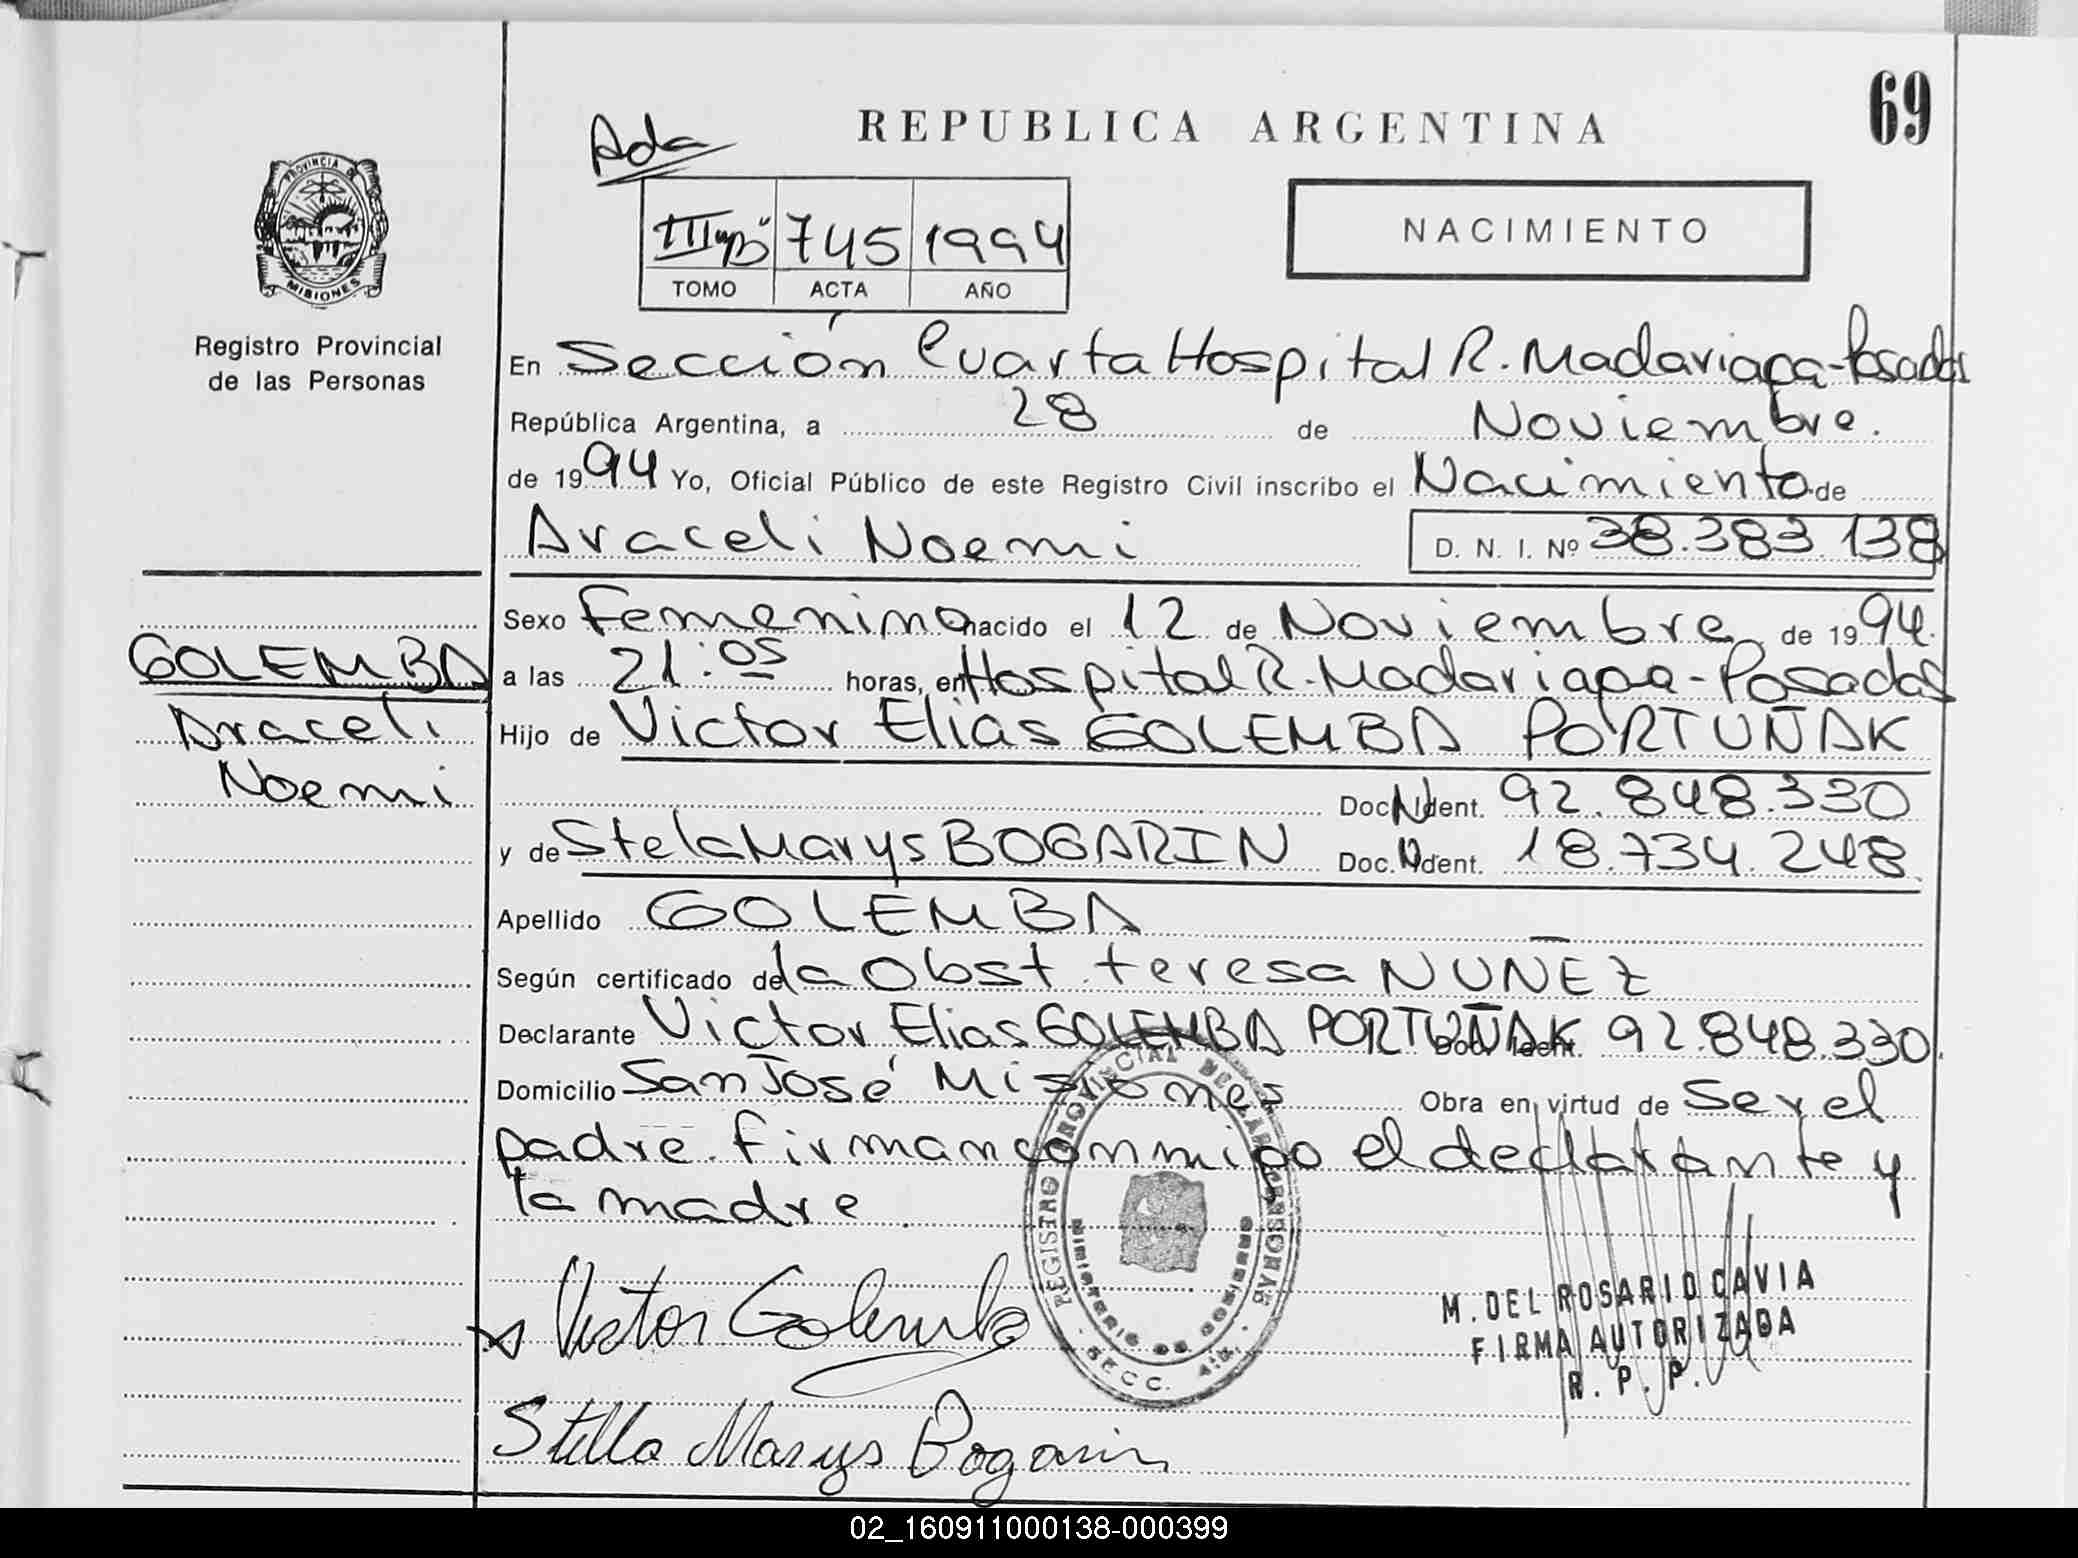 69
REPUBLICA ARGENTINA
Ada
PROVINCIA DE
MISIONES
Registro Provincial
de las Personas
III "B" 745 1994
TOMO ACTA AÑO
NACIMIENTO
En Sección Cuarta Hospital R. Madariaga-Posadas
República Argentina, a 28 de Noviembre.
de 1994 Yo, Oficial Público de este Registro Civil inscribo el Nacimiento de
Araceli Noemi D. N. I. Nº 38.383.138
Sexo Femenino nacido el 12 de Noviembre de 1994.
GOLEMBA
Araceli
Noemi
a las 21:05 horas, en Hospital R. Madariaga-Posadas
Hijo de Victor Elias GOLEMBA PORTUÑAK
Doc. Ident. 92.848.330
y de Stela Marys BOGARIN Doc. Ident. 18.734.248
Apellido GOLEMBA
Según certificado de la Obst. teresa NUÑEZ
Declarante Victor Elias GOLEMBA PORTUÑAK Doc. Ident. 92.848.330.
Domicilio San José Misiones Obra en virtud de Ser el
padre. Firman conmigo el declarante y
la madre.
REGISTRO PROVINCIAL DE LAS PERSONAS
MINISTERIO DE GOBIERNO
SECC. 4ta.
Victor Golemba
Stella Marys Bogarin
M. DEL ROSARIO CAVIA
FIRMA AUTORIZADA
R. P. P.
02_160911000138-000399